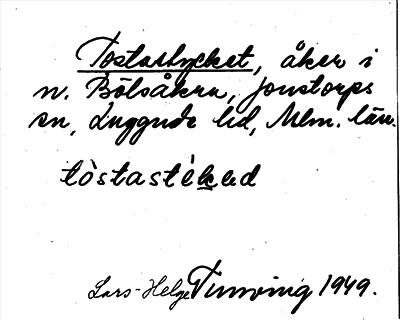 Tostastycket, åker i
n. Bölsåkra, Jonstorps
sn, Luggude hd, Mlm. län.
tòstastékəd
Lars-Helge Tunving 1949.